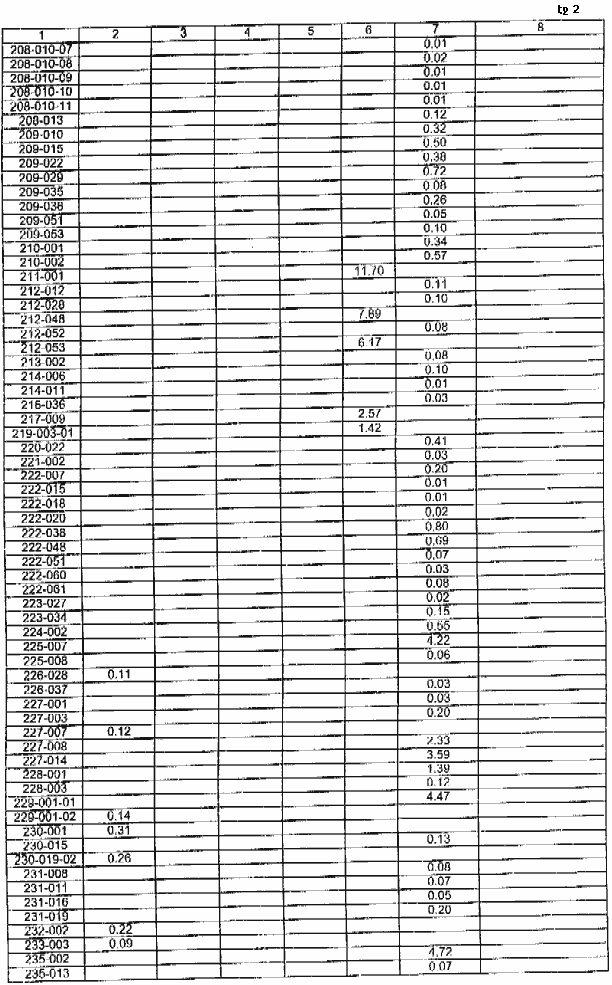 tp 2
1 2 3 4 5 6 7 8
208-010-07 0.01
208-010-08 0.02
208-010-09 0.01
208-010-10 0.01
208-010-11 0.01
208-013 0.12
209-010 0.32
209-015 0.50
209-022 0.38
209-029 0.72
209-035 0.08
209-038 0.26
209-051 0.05
209-053 0.10
210-001 0.34
210-002 0.57
211-001 11.70
212-012 0.11
212-028 0.10
212-048 7.89
212-052 0.08
212-053 6.17
213-002 0.08
214-006 0.10
214-011 0.01
216-036 0.03
217-009 2.57
219-003-01 1.42
220-022 0.41
221-002 0.03
222-007 0.20
222-015 0.01
222-018 0.01
222-020 0.02
222-038 0.80
222-048 0.69
222-051 0.07
222-060 0.03
222-061 0.08
223-027 0.02
223-034 0.15
224-002 0.55
225-007 4.22
225-008 0.06
226-028 0.11
226-037 0.03
227-001 0.03
227-003 0.20
227-007 0.12
227-008 2.33
227-014 3.59
228-001 1.39
228-003 0.12
229-001-01 4.47
229-001-02 0.14
230-001 0.31
230-015 0.13
230-019-02 0.26
231-008 0.08
231-011 0.07
231-016 0.05
231-019 0.20
232-002 0.22
233-003 0.09
235-002 4.72
235-013 0.07